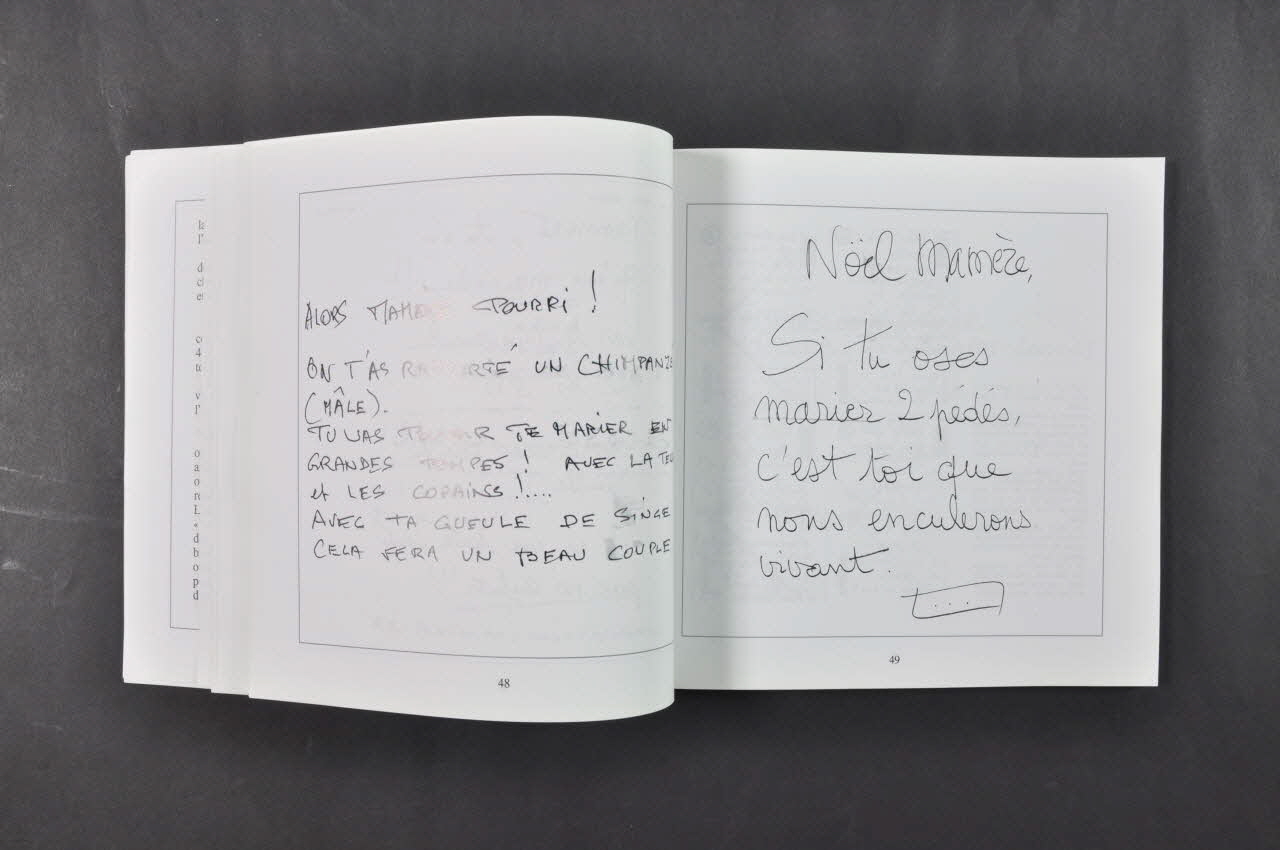 ALORS MAMERE POURRI !
ON T'AS RAPPORTÉ UN CHIMPANZE
(MÂLE).
TU VAS POUVOIR TE MARIER EN
GRANDES POMPES ! AVEC LA
et LES COPAINS !....
AVEC TA GUEULE DE SINGE
CELA FERA UN BEAU COUPLE
48
Nöel Mamère,
Si tu oses
marier 2 pédés,
c'est toi que
nous enculerons
vivant.
49